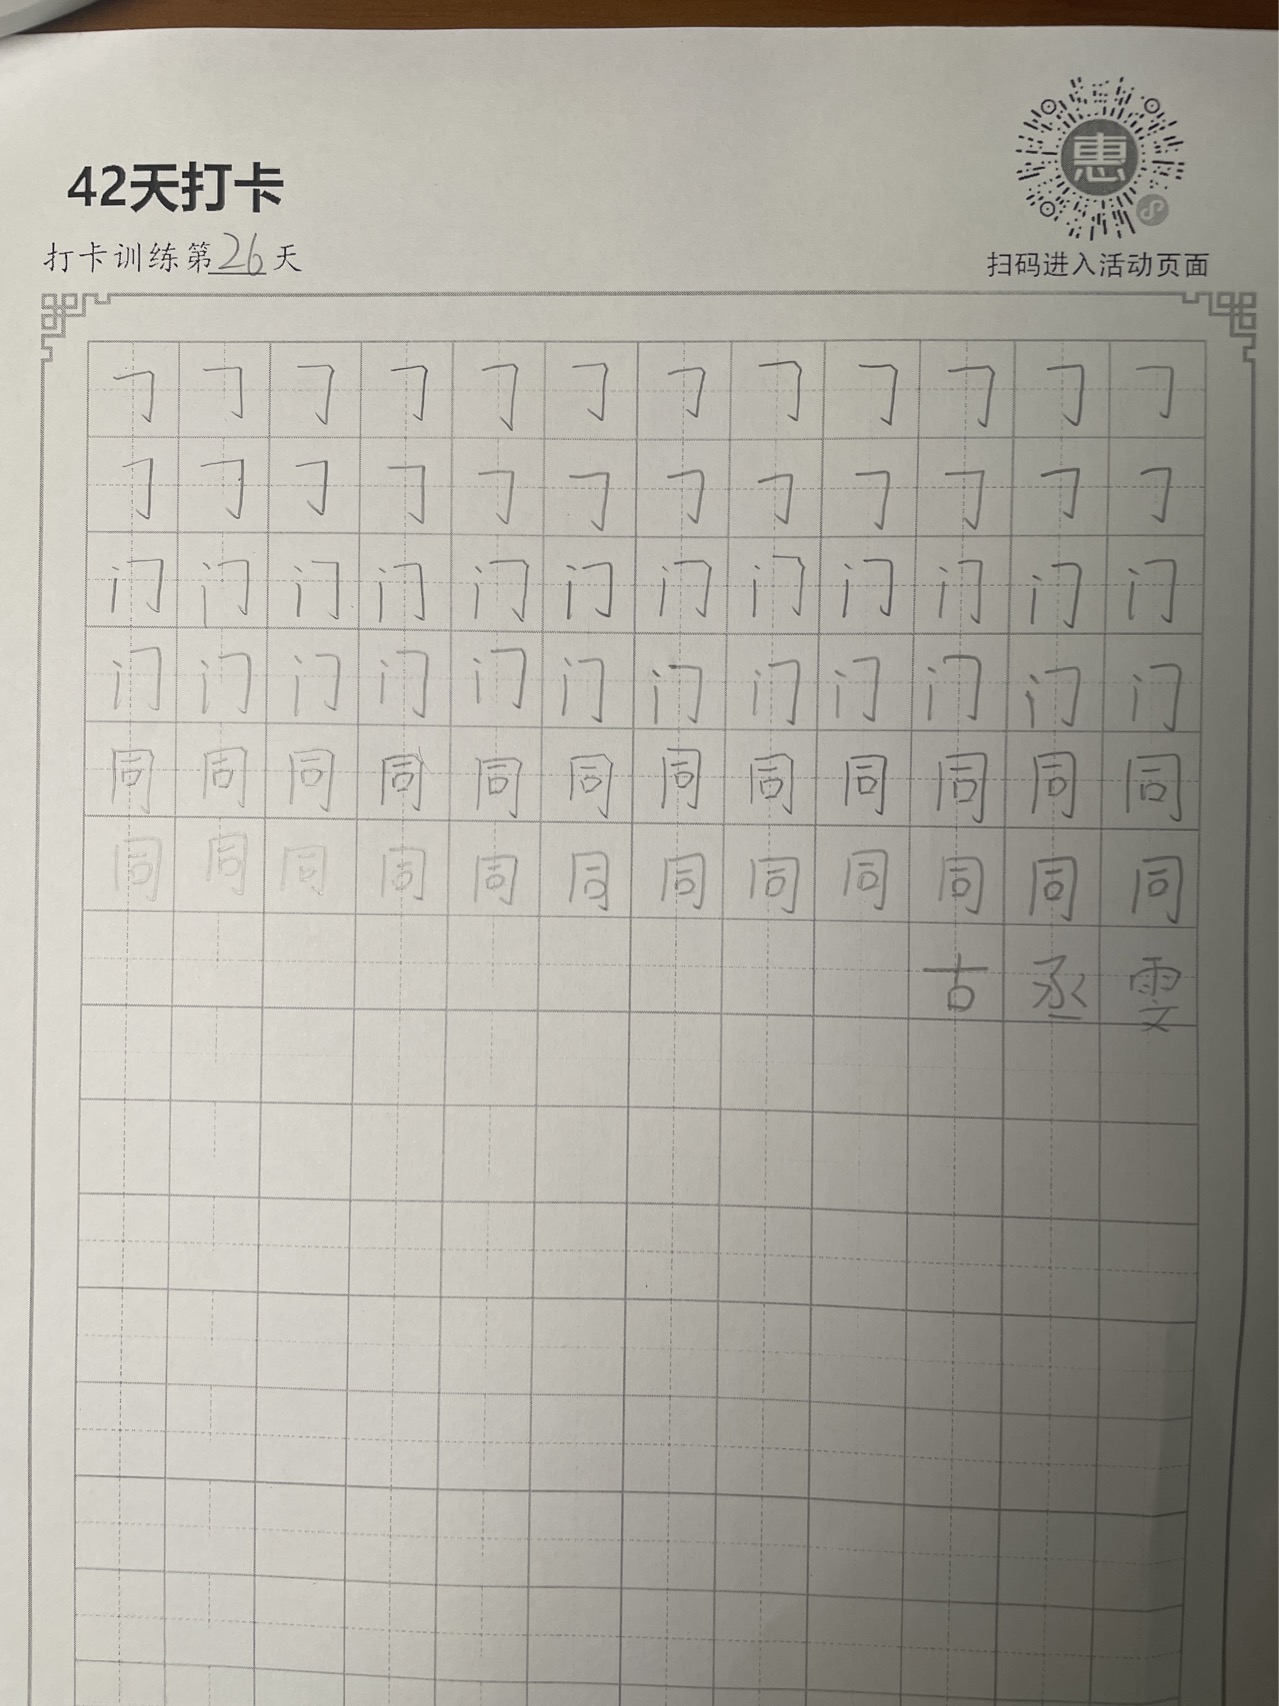 惠
42天打卡
打卡训练第26天
扫码进入活动页面
㇆㇆㇆㇆㇆㇆㇆㇆㇆㇆㇆㇆
㇆㇆㇆㇆㇆㇆㇆㇆㇆㇆㇆㇆
门门门门门门门门门门门门
门门门门门门门门门门门门
同同同同同同同同同同同同
同同同同同同同同同同同同
古丞雯